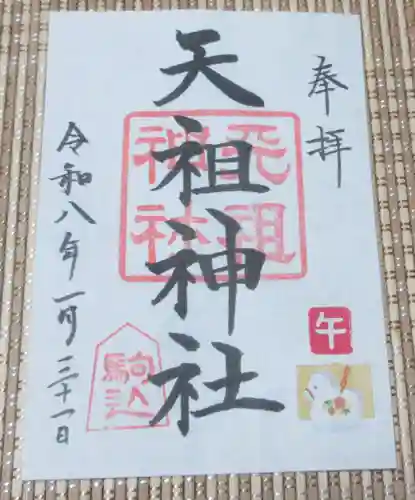 奉拝
天祖神社
天祖神社
午
駒込
令和八年一月三十一日